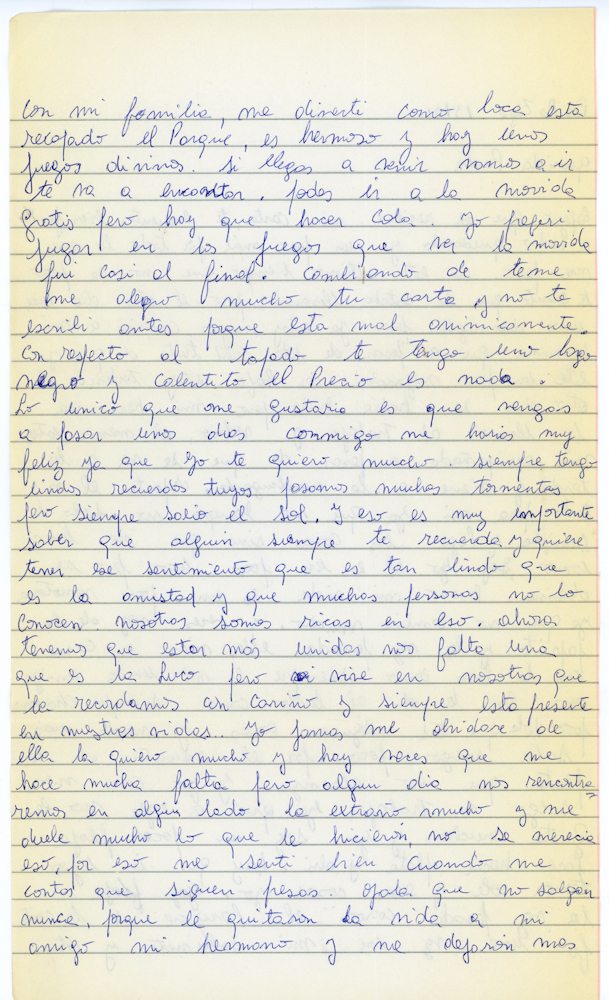 con mi familia, me diverti como loca esta
recopado el Parque, es hermoso y hay unos
juegos divinos. si llegas a venir vamos a ir
te va a encantar. podes ir a la movida
gratis pero hay que hacer cola. Yo preferi
jugar en los juegos que ver la movida
fui casi al final. cambiando de tema
me alegro mucho tu carta y no te
escribi antes porque esta mal animicamente.
Con respecto al tapado te tengo uno largo
negro y calentito el Precio es nada.
Lo unico que me gustaria es que vengas
a pasar unos dias conmigo me harias muy
feliz ya que yo te quiero mucho. siempre tengo
lindos recuerdos tuyos pasamos muchas tormentas
pero siempre salio el sol. Y eso es muy importante
saber que alguin siempre te recuerda y quiere
tener ese sentimiento que es tan lindo que
es la amistad y que muchas personas no lo
conocen. nosotras somos ricas en eso. ahora
tenemos que estar más unidas nos falta una
que es la Luco pero vive en nosotras que
la recordamos con cariño y siempre esta presente
en nuestras vidas.. Yo jamas me olvidare de
ella la quiero mucho y hay veces que me
hace mucha falta pero algun dia nos rencontra=
remos en algún lado la extraño mucho y me
duele mucho lo que le hicierón, no se merecia
eso, por eso me senti bien cuando me
contas que siguen presas. ojala que no salgan
nunca, porque le quitaron la vida a mi
amiga mi hermana y me dejarón mas